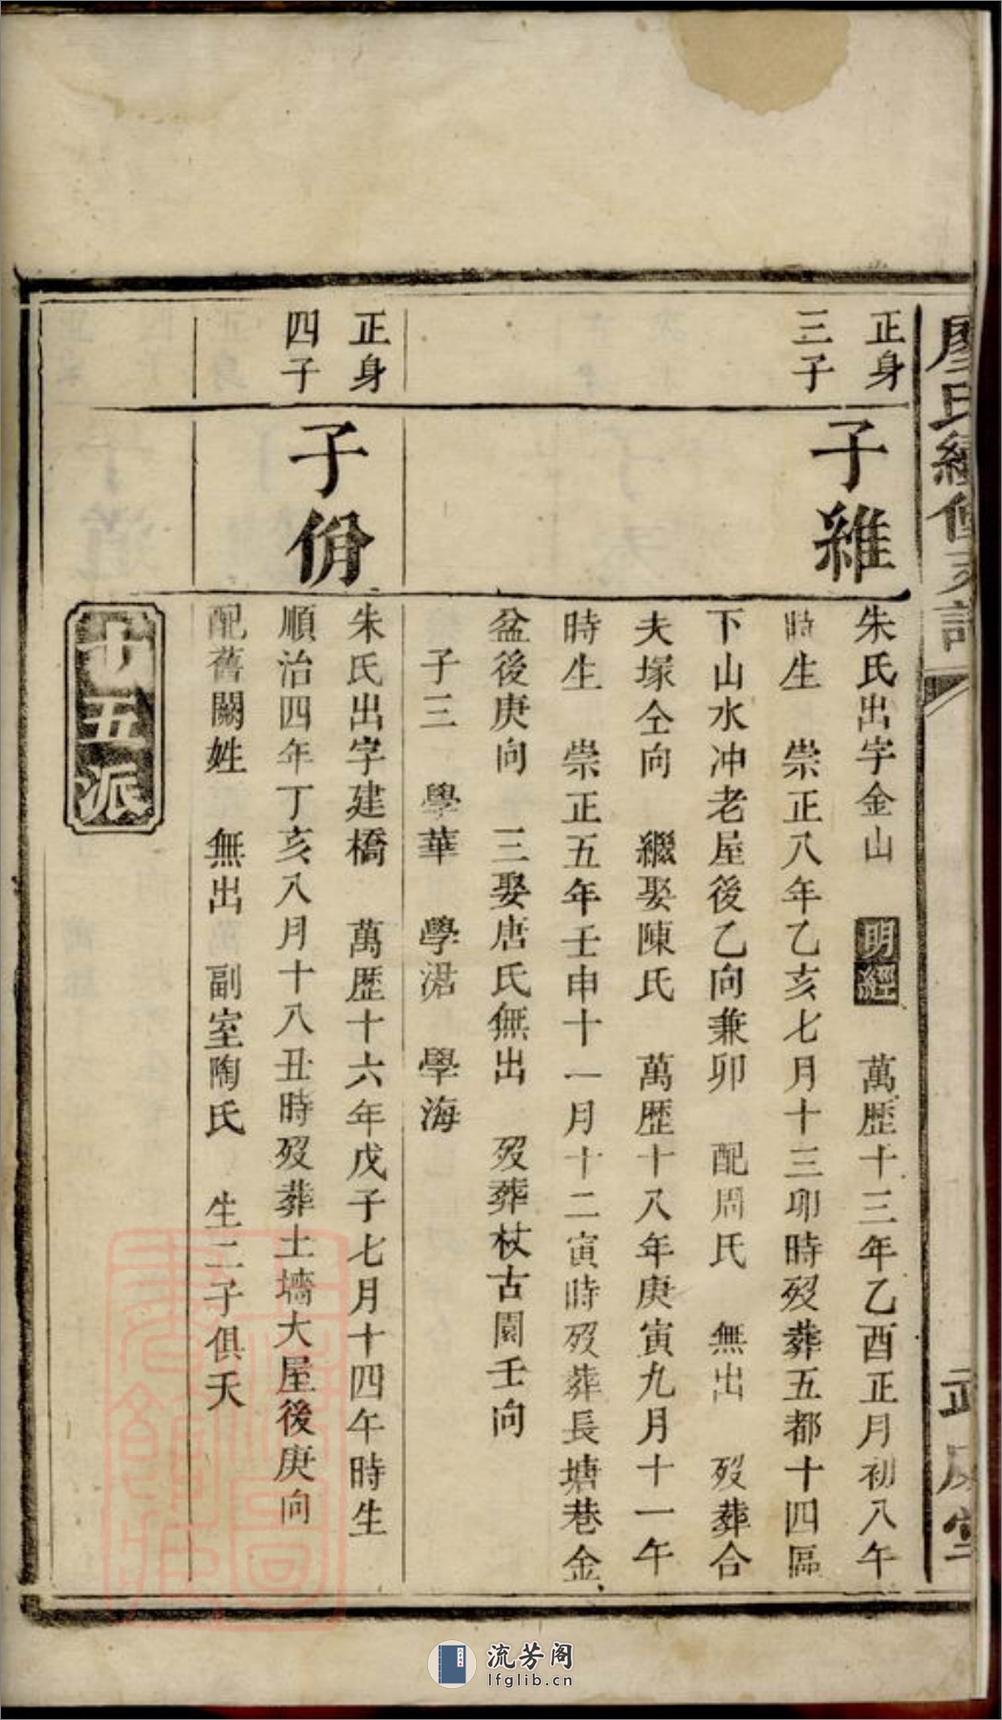 廖氏續修支譜
正身
三子
子維
朱氏出字金山 明經 萬歷十三年乙酉正月初八午
時生 崇正八年乙亥七月十三卯時歿葬五都十四區
下山水冲老屋後乙向兼卯 配周氏 無出 歿葬合
夫塚仝向 繼娶陳氏 萬歷十八年庚寅九月十一午
時生 崇正五年壬申十一月十二寅時歿葬長塘巷金
盆後庚向 三娶唐氏無出 歿葬杖古園壬向
子三 學華 學涒 學海
正身
四子
子佾
朱氏出字建橋 萬歷十六年戊子七月十四午時生
順治四年丁亥八月十八丑時歿葬土墻大屋後庚向
配舊闕姓 無出 副室陶氏 生二子俱夭
廿五派
流芳阁
lfglib.cn